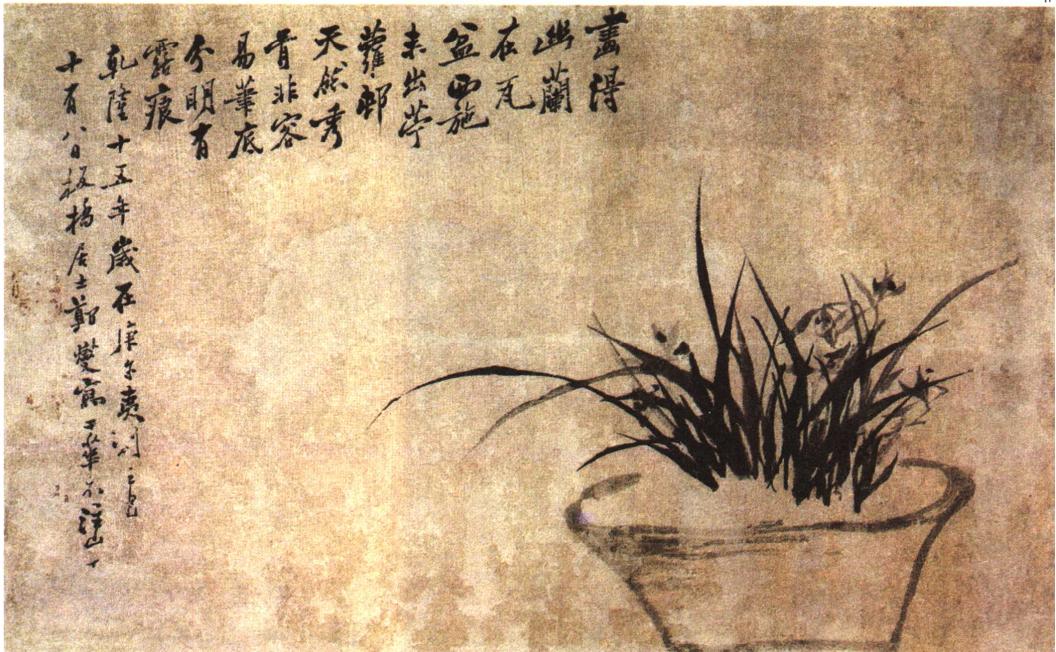 畫得
幽蘭
在瓦
盆西施
未出苧
蘿邨
天然秀
骨非容
易筆底
分明有
露痕
乾隆十五年歲在庚午夷則
十有八日板橋居士鄭燮寫